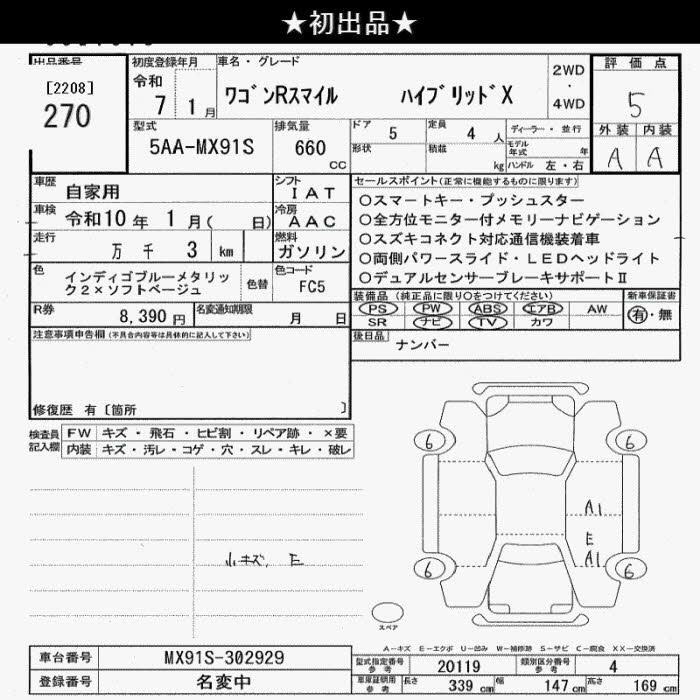 ★初出品★
出品番号
[2208]
270
初度登録年月
令和
7 1月
車名・グレード
ワゴンRスマイル ハイブリッドX
2WD
・
4WD
評価点
5
外装 内装
A A
型式
5AA-MX91S
排気量
660
cc
ドア 5
定員 4 人
形状
積載 kg
ディーラー・並行
モデル年式 年
ハンドル 左・右
車歴 自家用
シフト IAT
車検 令和10年 1月( 日)
冷房 AAC
走行 万 千 3 km
燃料 ガソリン
色 インディゴブルーメタリック2×ソフトベージュ
色替
色コード FC5
R券 8,390円
名変通知期限 月 日
セールスポイント(正常に機能するものに限ります)
○スマートキー・プッシュスター
○全方位モニター付メモリーナビゲーション
○スズキコネクト対応通信機装着車
○両側パワースライド・LEDヘッドライト
○デュアルセンサーブレーキサポートⅡ
装備品 (純正品に限り○をつけてください)
新車保証書
PS PW ABS エアB AW
SR ナビ TV カワ
有・無
後日品 ナンバー
注意事項申告欄(不具合内容等は具体的に記入して下さい)
修復歴 有〔箇所 〕
検査員記入欄
FW キズ・飛石・ヒビ割・リペア跡・×要
内装 キズ・汚レ・コゲ・穴・スレ・キレ・破レ
小キズ、E
6 6
A1
E
A1
6 6
スペア
A-キズ E-エクボ U-凹み W-補修跡 S-サビ C-腐食 XX-交換済
車台番号 MX91S-302929
登録番号 名変中
型式指定番号 参考 20119
類別区分番号 参考 4
車庫証明用 参考 長さ 339 cm 幅 147 cm 高さ 169 cm